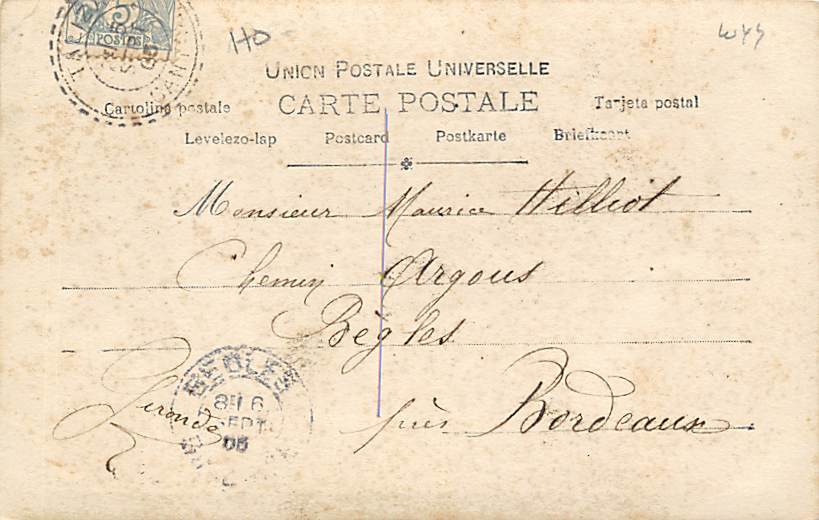 5
POSTES
HO
UNION POSTALE UNIVERSELLE
CARTE POSTALE
Cartolina postale
Tarjeta postal
Levelezo-lap Postcard Postkarte Briefkaart
Monsieur Maurice Hilliot
Chemin Argous
Bègles
Gironde
près Bordeaux
BEGLES
6
SEPT